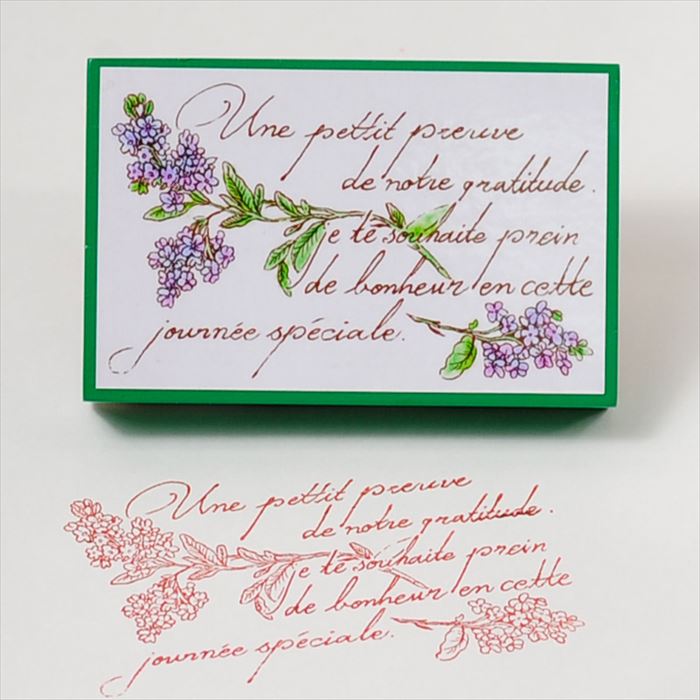 Une pettit preuve
de notre gratitude.
je te souhaite prein
de bonheur en cette
journée spéciale.
Une pettit preuve
de notre gratitude.
je te souhaite prein
de bonheur en cette
journée spéciale.